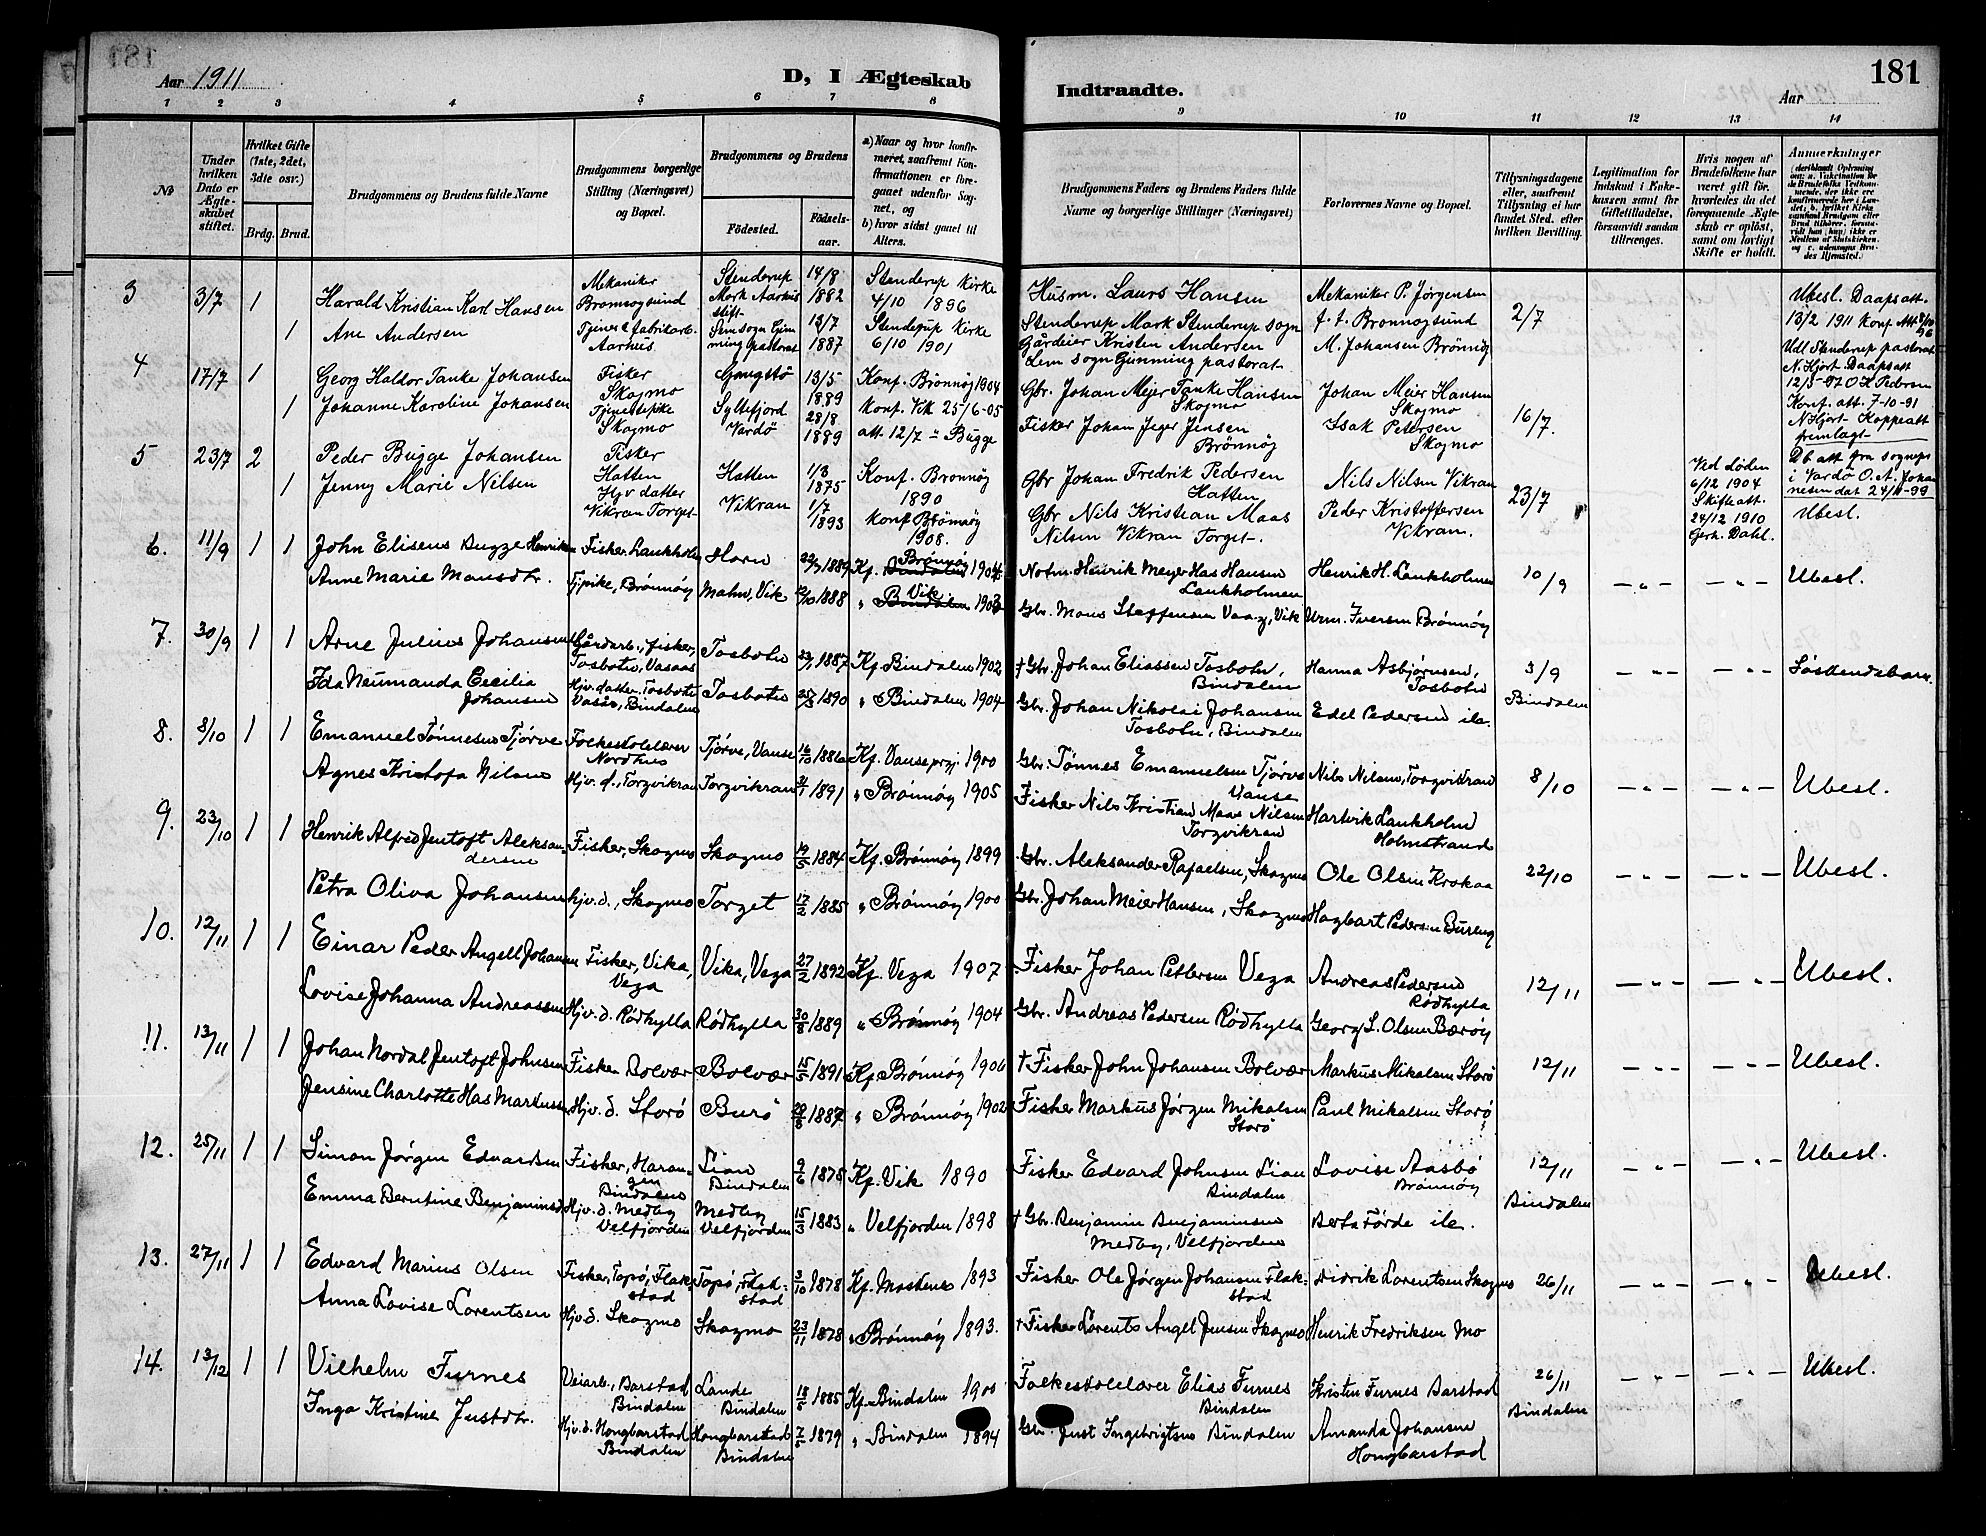 181
Aar 1911
D, I Ægteskab
Indtraadte.
Aar
181
1 2 3 4 5 6 7 8 9 10 11 12 13 14
No
Under hvilken Dato er Ægteskabet stiftet.
Hvilket Gifte (1ste, 2det, 3die osv.)
Brdg. Brud.
Brudgommens og Brudens fulde Navne
Brudgommens borgerlige Stilling (Næringsvei) og Bopæl.
Brudgommens og Brudens
Fødested. Fødselsaar.
a) Naar og hvor konfirmeret, saafremt Konfirmationen er foregaaet udenfor Sognet, og
b) hvor sidst gaaet til Alters.
Brudgommens Faders og Brudens Faders fulde Navne og borgerlige Stillinger (Næringsvei)
Forlovernes Navne og Bopæl.
Tillysningsdagene eller, saafremt Tillysning ei har fundet Sted, efter hvilken Bevilling.
Legitimation for Indskud i Enkekassen samt for Giftetilladelse, forsaavidt saadan tiltrænges.
Hvis nogen af Brudefolkene har været gift før, hvorledes da det foregaaende Ægteskab er opløst, samt om lovligt Skifte er holdt.
Anmærkninger
3 3/7 1 Harald Kristian Karl Hansen Mekaniker Brønnøgsund Stenderup Mark Aarhus stift 14/8 1882 Stenderup Kirke 4/10 1896 Husm. Laurs Hansen Stenderup Mark Stenderup sogn Mekaniker P. Jørgensen f. t. Brønnøgsund 2/7 Ubesl. Daapsatt. 13/2 1911 Konf Att
1 Ane Andersen Aarhus 1887 Stenderup Kirke 6/10 1901 Gårdeier Kristen Andersen Lem sogn Gimming pastorat M. Johansen Brönnög
4 17/7 1 Georg Haldor Tanke Johansen Fisker Skogmo 13/5 1889 Konf. Brønnøg 1904 Gbr. Johan Mejer Tanke Hansen Skogmo Johan Meier Hansen Skogmo 16/7.
1 Johanne Karoline Johansen Tjenestepike Skogmo Syltefjord Vardö 28/8 1889 Konf. Vik 25/6-05 att. 12/7 = Bugge Fisker Johan Jeger Jensen Brönnög Isak Petersen Skogmo
Udl Stenderup pastorat N. Hjort. Daapsatt 12/5-97 O K Pedersen Konf. att. 7-10-91 N Hjort- Koppeatt fremlagt
5 23/7 2 Peder Bugge Johansen Fisker Hatten Hatten 1/3 1875 Konf. Brønnög 1890 Gbr Johan Fredrik Pedersen Hatten Nils Nilsen Vikran 23/7 Ved Döden 6/12 1904 Skifteatt. 24/12 1910 Gerh. Dahl.
1 Jenny Marie Nilsen Hjv datter Vikran Torget- Vikran 1/7 1893 Konf Brönnög 1908. Gbr Nils Kristian Maas Nilsen Vikran Torget. Peder Kristoffersen Vikran.
Db att fra sognepr i Vardö O. A. Johannesen dat 24/11-99
Ubesl.
6. 11/9 1 1 John Elisens Bugge Henriksen Fisker Lankholm Horn 1889 Kf. Brønnøy 1904 Notm. Henrik Meyer Has Hansen Lankholmen Henrik H. Lankholmen 10/9 — „ — — „ — Ubesl.
Anne Marie Monsdtr. Tjpike, Brønnøy Mahn, Vik 1888 „ Vik 1903 Gbr. Mons Steffensen Vaag, Vik Urm. Iversen Brønnøy
7. 30/9 1 1 Arne Julius Johansen Gårdarb., fisker, Tosbotn, Vasaas Tosbotn 1887 Kf. Bindalen 1902 † Gbr. Johan Eliassen Tosbotn, Bindalen Hanna Asbjørnsen, Tosbotn 3/9 Bindalen — „ — — „ — Søskendebarn.
Ida Neumanda Cecilia Johansen Hjv. datter. Tosbotn Vasås, Bindalen Tosbotn 1890 „ Bindalen 1904 Gbr. Johan Nikolai Johansen Tosbotn, Bindalen Edel Pedersen ib.
8. 8/10 1 1 Emanuel Tønnesen Tjørve Folkeskolelærer Nordhus Tjørve, Vanse 16/10 1886 Kf. Vanse prgj. 1900 Gbr. Tønnes Emanuelsen Tjørve Vanse Nils Nilsen, Torgvikran 8/10 — „ — — „ — Ubesl.
Agnes Kristofa Nilsen Hjv. d., Torgvikran Torgvikran 1891 „ Brønnøy 1905 Fisker Nils Kristian Maas Nilsen Torgvikran Hartvik Lankholm Holmstrand
9. 23/10 1 1 Henrik Alfred Jentoft Aleksandersen Fisker, Skogmo Skogmo 19/5 1884 Kf. Brønnøy 1899 Gbr. Aleksander Rafaelsen, Skogmo Ole Olsen Krokaa 22/10 — „ — — „ — Ubesl.
Petra Oliva Johansen Hjv. d., Skogmo Torget 17/2 1885 „ Brønnøy 1900 Gbr. Johan Meier Hansen, Skogmo Hagbart Pedersen Bureng
10. 12/11 1 1 Einar Peder Angell Johansen Fisker, Vika, Vega Vika, Vega 27/2 1892 Kf. Vega 1907 Fisker Johan Pettersen Vega Andreas Pedersen Rødhylla 12/11 — „ — — „ — Ubesl.
Lovise Johanna Andreassen Hjv. d. Rødhylla Rødhylla 30/8 1889 „ Brønnøy 1904 Gbr. Andreas Pedersen Rødhylla Georg L. Olsen Bærøy
11. 13/11 1 1 Johan Nordal Jentoft Johnsen Fisker Bolvær Bolvær 15/5 1891 Kf Brønnøy 1906 † Fisker John Johansen Bolvær Markus Mikalsen Storø 12/11 — „ — — „ — Ubesl.
Jensine Charlotte Has Markussen Hjv. d. Storø Burø 28/8 1887 „ Brønnøy 1902 Fisker Markus Jørgen Mikalsen Storø Paul Mikalsen Storø
12. 25/11 1 1 Simon Jørgen Edvardsen Fisker, Harangen Bindalen Lian Bindalen 9/6 1875 Kf. Vik 1890 Fisker Edvard Johnsen Lian Bindalen Lovise Aasbø Brønnøy 12/11 Bindalen — „ — — „ — Ubesl.
Emma Berntine Benjaminsd. Hjv. d. Medby Velfjorden Medby Velfjorden 15/3 1883 „ Velfjorden 1898 † Gbr. Benjamin Benjaminsen Medby, Velfjorden Berta Førde ib.
13. 27/11 1 1 Edvard Marius Olsen Fisker, Topø, Flakstad Topø, Flakstad 3/10 1878 Kf. Moskenes 1893 Fisker Ole Jørgen Johansen Flakstad Didrik Lorentsen Skogmo 26/11 — „ — — „ — Ubesl.
Anna Lovise Lorentsen Hjv. d. Skogmo Skogmo 23/11 1878 „ Brønnøy 1893. † Fisker Lorents Angel Jensen Skogmo Henrik Fredriksen Mo
14. 13/12 1 1 Vilhelm Furnes Veiarb., Barstad Bindalen Lande Bindalen 18/5 1885 Kf. Bindalen 1900 Folkeskolelærer Elias Furnes Bindalen Kristen Furnes Barstad 26/11 Bindalen — „ — — „ — Ubesl.
Inga Kristine Justdtr. Hjv. d. Hongbarstad Bindalen Hongbarstad Bindalen 7/5 1879 „ Bindalen 1894 Gbr. Just Ingebrigtsen Bindalen Amanda Johansen Hongbarstad